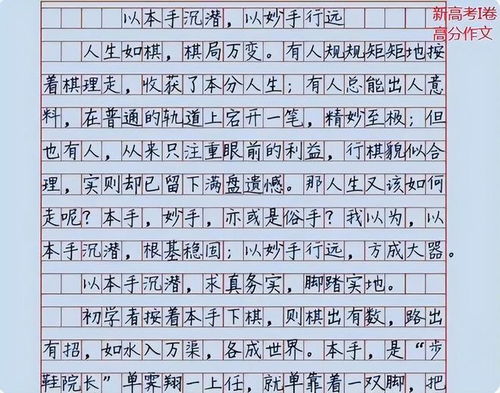 以本手沉潜，以妙手行远
新高考I卷
高分作文
人生如棋，棋局万变。有人规规矩矩地按
着棋理走，收获了本分人生；有人总能出人意
料，在普通的轨道上宕开一笔，精妙至极；但
也有人，从来只注重眼前的利益，行棋貌似合
理，实则却已留下满盘遗憾。那人生又该如何
走呢？本手，妙手，亦或是俗手？我以为，以
本手沉潜，根基稳固；以妙手行远，方成大器。
以本手沉潜，求真务实，脚踏实地。
初学者按着本手下棋，则棋出有数，路出
有招，如水入万渠，各成世界。本手，是“步
鞋院长”单霁翔一上任，就单靠着一双脚，把